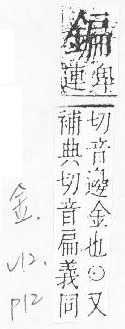 鍽
卑
連
切音邊金也○又
補典切音扁義同
金.
V12.
P12